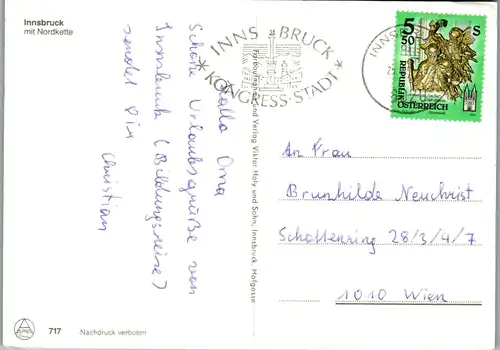 Innsbruck
mit Nordkette
Hallo Oma
Schöne Urlaubsgrüße von
Innsbruck (Bildungsreise)
sendet Dir
Christian
717
Nachdruck verboten
Farbaufnahme und Verlag Viktor Holy und Sohn, Innsbruck, Hofgasse
INNSBRUCK
KONGRESS-STADT
INNS
5
50
S
REPUBLIK
ÖSTERREICH
An Frau
Brunhilde Neuchrist
Schottenring 28/3/4/7
1010 Wien